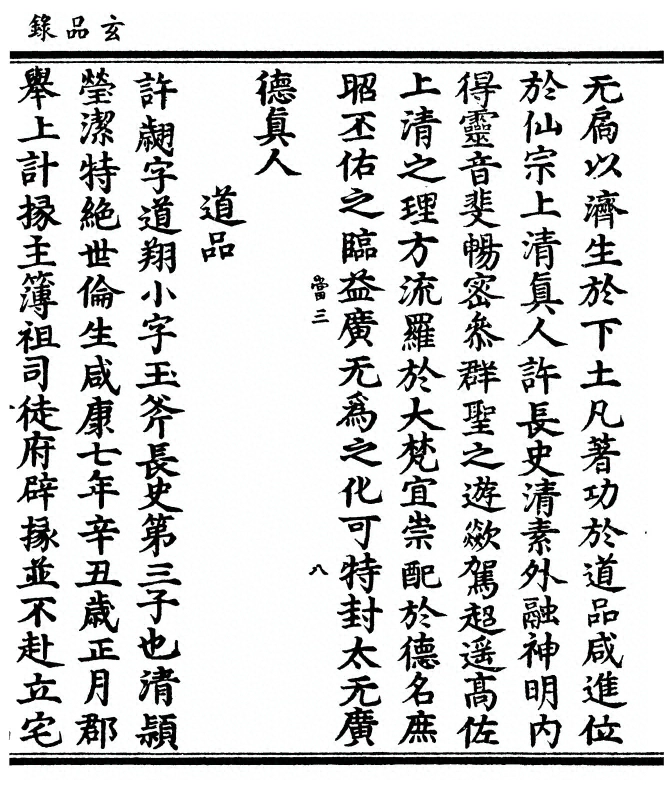 玄品錄
无扃以濟生於下土凡著功於道品咸進位
於仙宗上清眞人許長史清素外融神明内
得靈音斐暢密叅群聖之遊歘駕超遥髙佐
上清之理方流羅於大梵宜崇配於德名庶
昭丕佑之臨益廣无爲之化可特封太无廣
當三
八
德眞人
道品
許翽字道翔小字玉斧長史第三子也清頴
瑩潔特絶世倫生咸康七年辛丑歲正月郡
舉上計掾主簿祖司徒府辟掾並不赴立宅